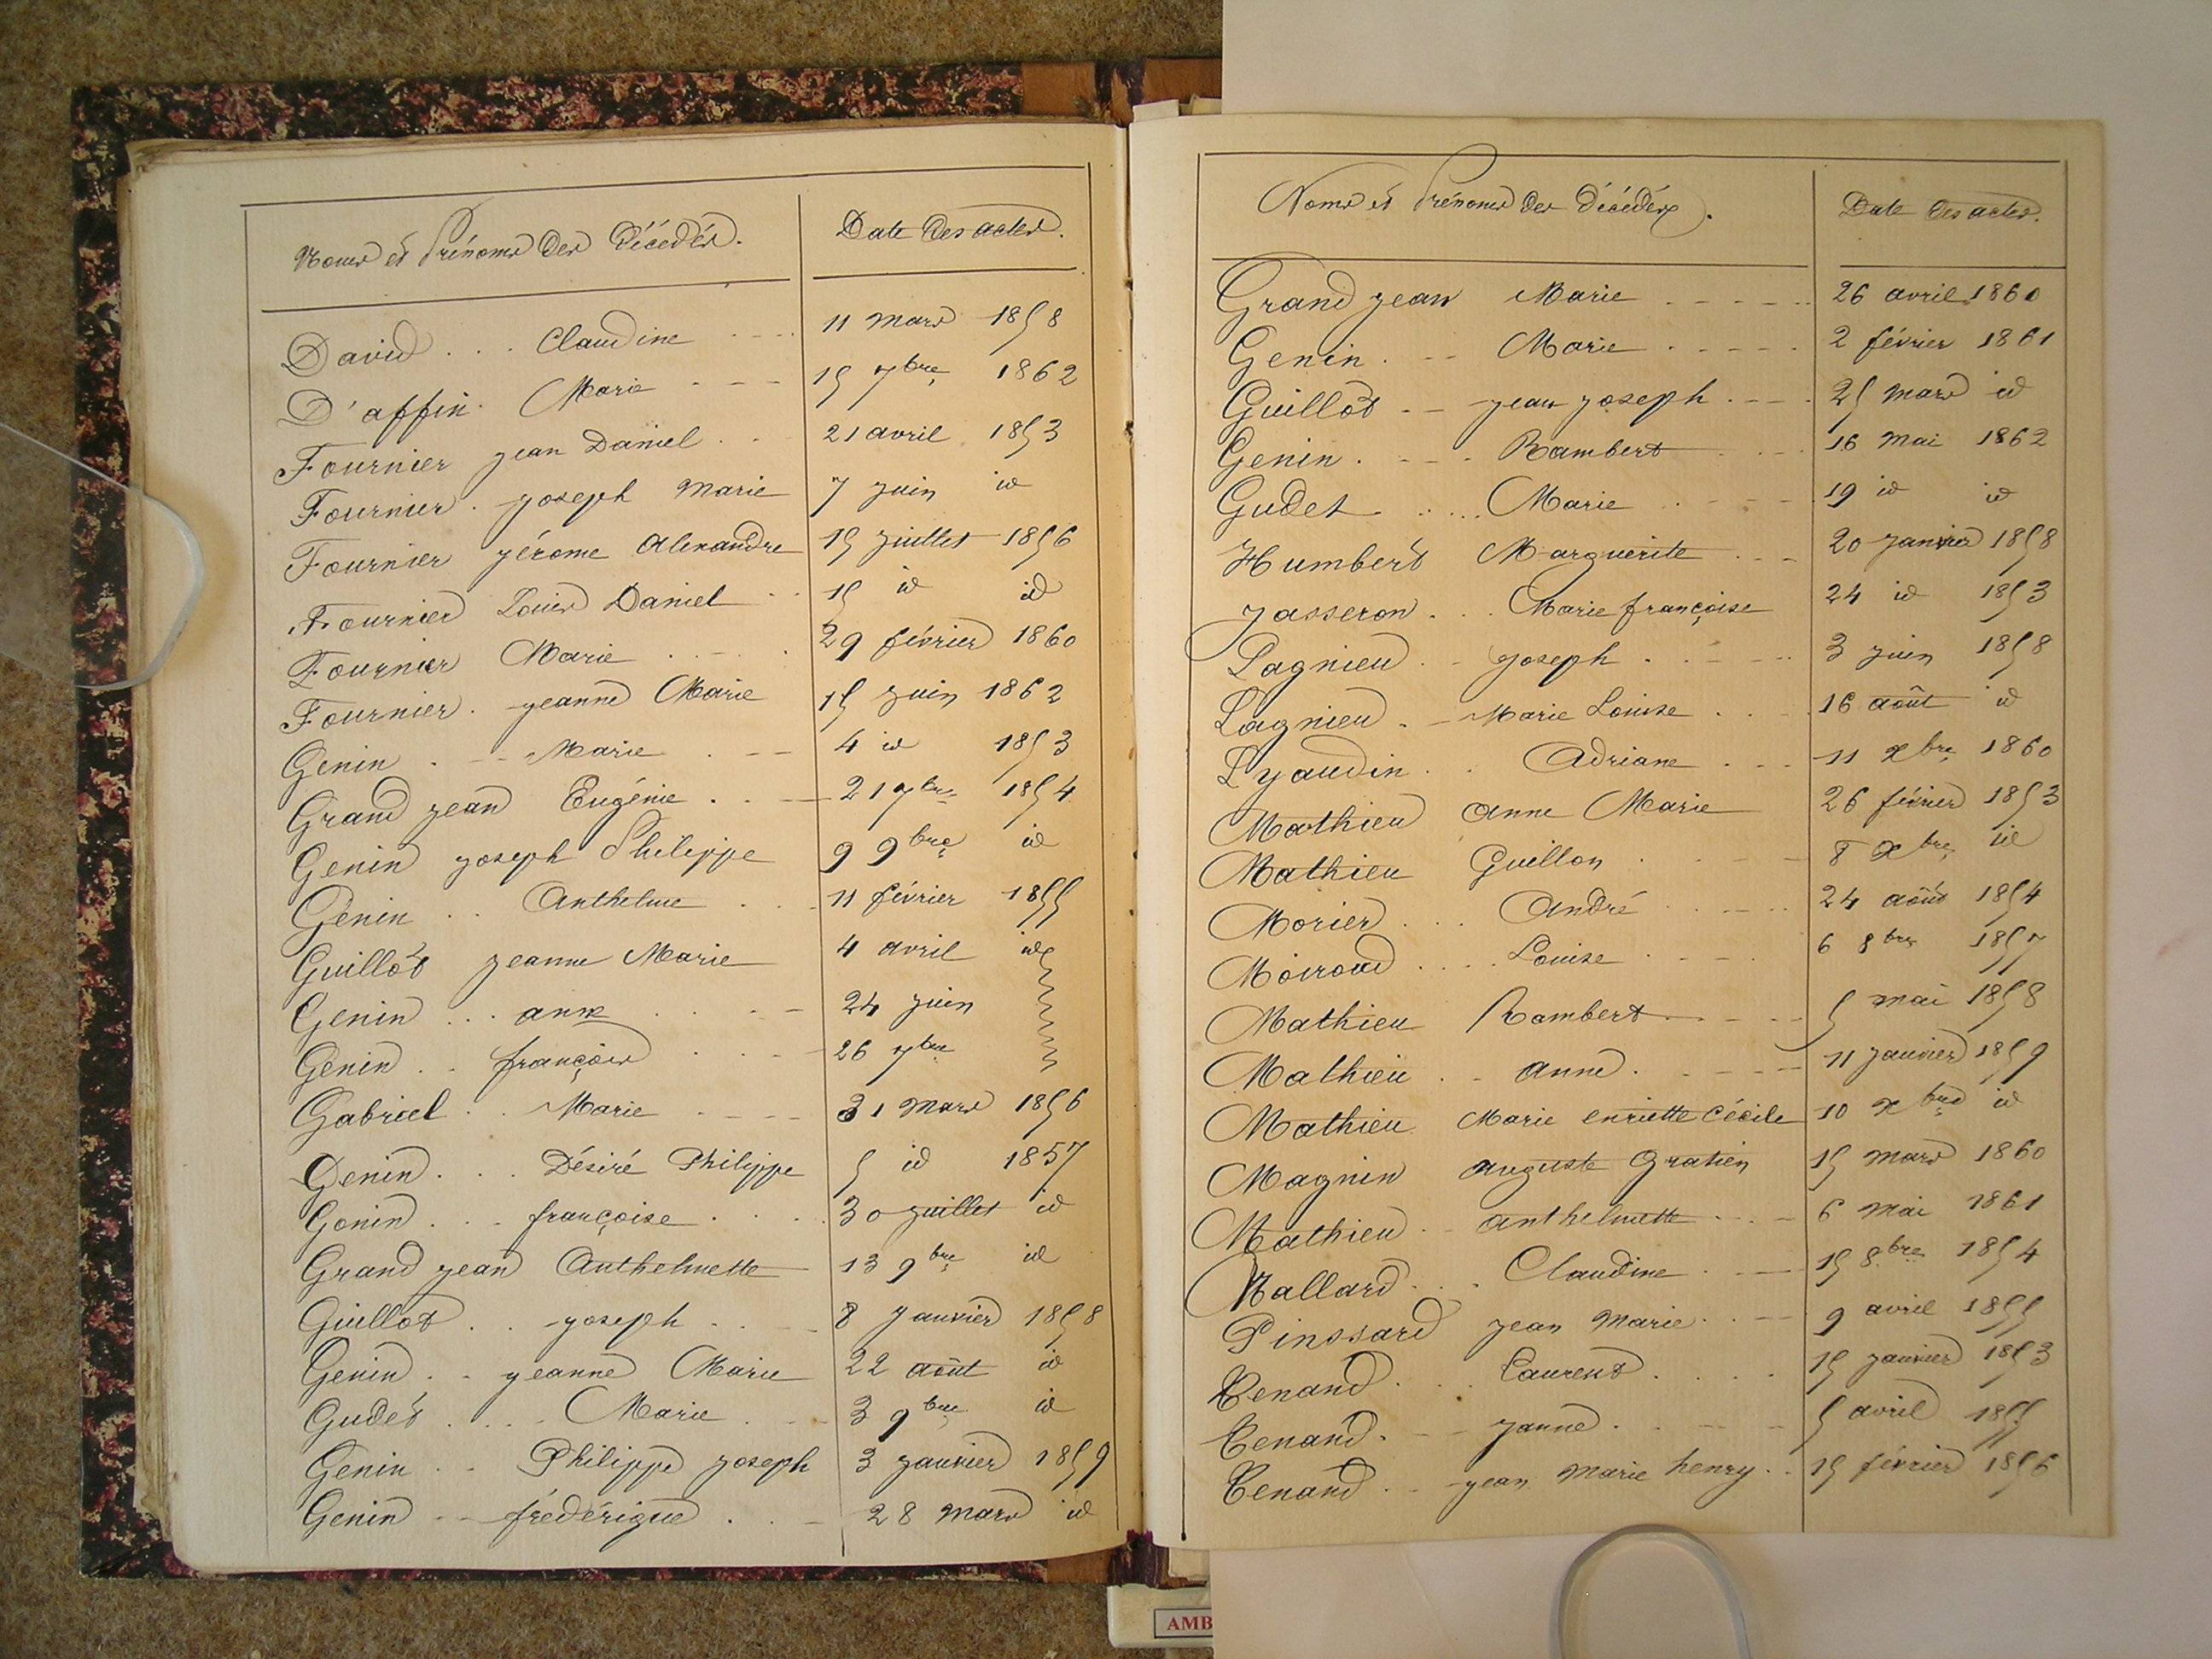 Noms et Prénoms des Décédés. Date des actes.
David . . . Claudine 11 mars 1858
D'affin . Marie 15 7bre 1862
Fournier jean Daniel 21 avril 1853
Fournier . joseph marie 7 juin id
Fournier jérome Alexandre 15 juillet 1856
Fournier Louis Daniel 15 id id
Fournier Marie 29 février 1860
Fournier . jeanne Marie 15 juin 1862
Genin . Marie 4 id 1853
Grand jean Eugénie 21 7bre 1854
Genin joseph Philippe 9 9bre id
Genin . . Anthelme 11 février 1855
Guillot jeanne Marie 4 avril id
Genin . . . anne 24 juin
Genin . . françois 26 7bre
Gabriel . . Marie 31 mars 1856
Genin . . . Désiré Philippe 5 id 1857
Gonin . . . françoise 30 juillet id
Grand jean Anthelmette 13 9bre id
Guillot . . joseph 8 janvier 1858
Genin . . jeanne Marie 22 août id
Gudet . . . Marie 3 9bre id
Genin . . Philippe joseph 3 janvier 1859
Genin frédérique 28 mars id
Noms et Prénoms des Décédés. Date des actes.
Grand jean Marie 26 avril 1860
Genin . Marie 2 février 1861
Guillot jean joseph 25 mars id
Genin . Rambert 16 mai 1862
Gudet Marie 19 id id
Humbert Marguerite 20 janvier 1858
jasseron . . . Marie françoise 24 id 1853
Lagnieu . joseph 3 juin 1858
Lagnieu . Marie Louise 16 août id
Lyaudin . . Adriane 11 xbre 1860
Mathieu Anne Marie 26 février 1853
Mathieu Guillon 8 xbre id
Morier . . . André 24 août 1854
Moiroud . . . . Louise 6 8bre 1857
Mathieu Rambert 5 mai 1858
Mathieu . . anne 11 janvier 1859
Mathieu Marie enriette Cécile 10 xbre id
Magnin auguste Gratien 15 mars 1860
Mathieu anthelmette 6 mai 1861
Nallard . . . Claudine 15 8bre 1854
Pinssard jean marie 9 avril 1855
Tenand . . . Laurent 15 janvier 1853
Tenand . janne 5 avril 1855
Tenand . jean marie henry . . 15 février 1856
AMB